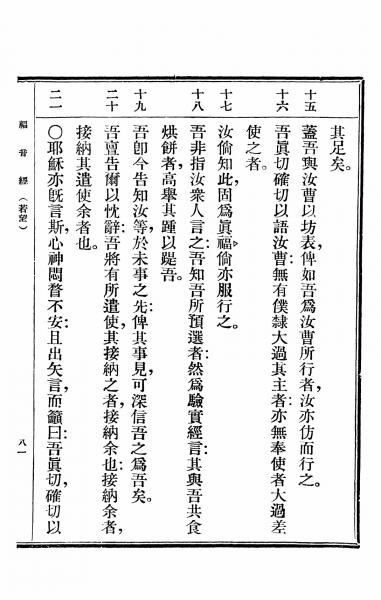 其足矣。
十五 蓋吾與汝曹以坊表，俾如吾爲汝曹所行者，汝亦仿而行之。
十六 吾眞切確切以語汝曹：無有僕隸大過其主者；亦無奉使者大過差
使之者。
十七 汝倘知此，固爲眞福，倘亦服行之。
十八 吾非指汝衆人言之；吾知吾所預選者；然爲驗實經言：其與吾共食
烘餅者，高舉其踵以踶吾。
十九 吾卽今告知汝等，於未事之先，俾其事見，可深信吾之爲吾矣。
二十 吾亶告爾以忱辭：吾將有所遣使，其接納之者，接納余也；接納余者，
接納其遣使余者也。
二一 〇耶穌亦旣言斯，心神悶瞀不安；且出矢言，而籲曰：吾眞切，確切以
福音經（若望）
八一